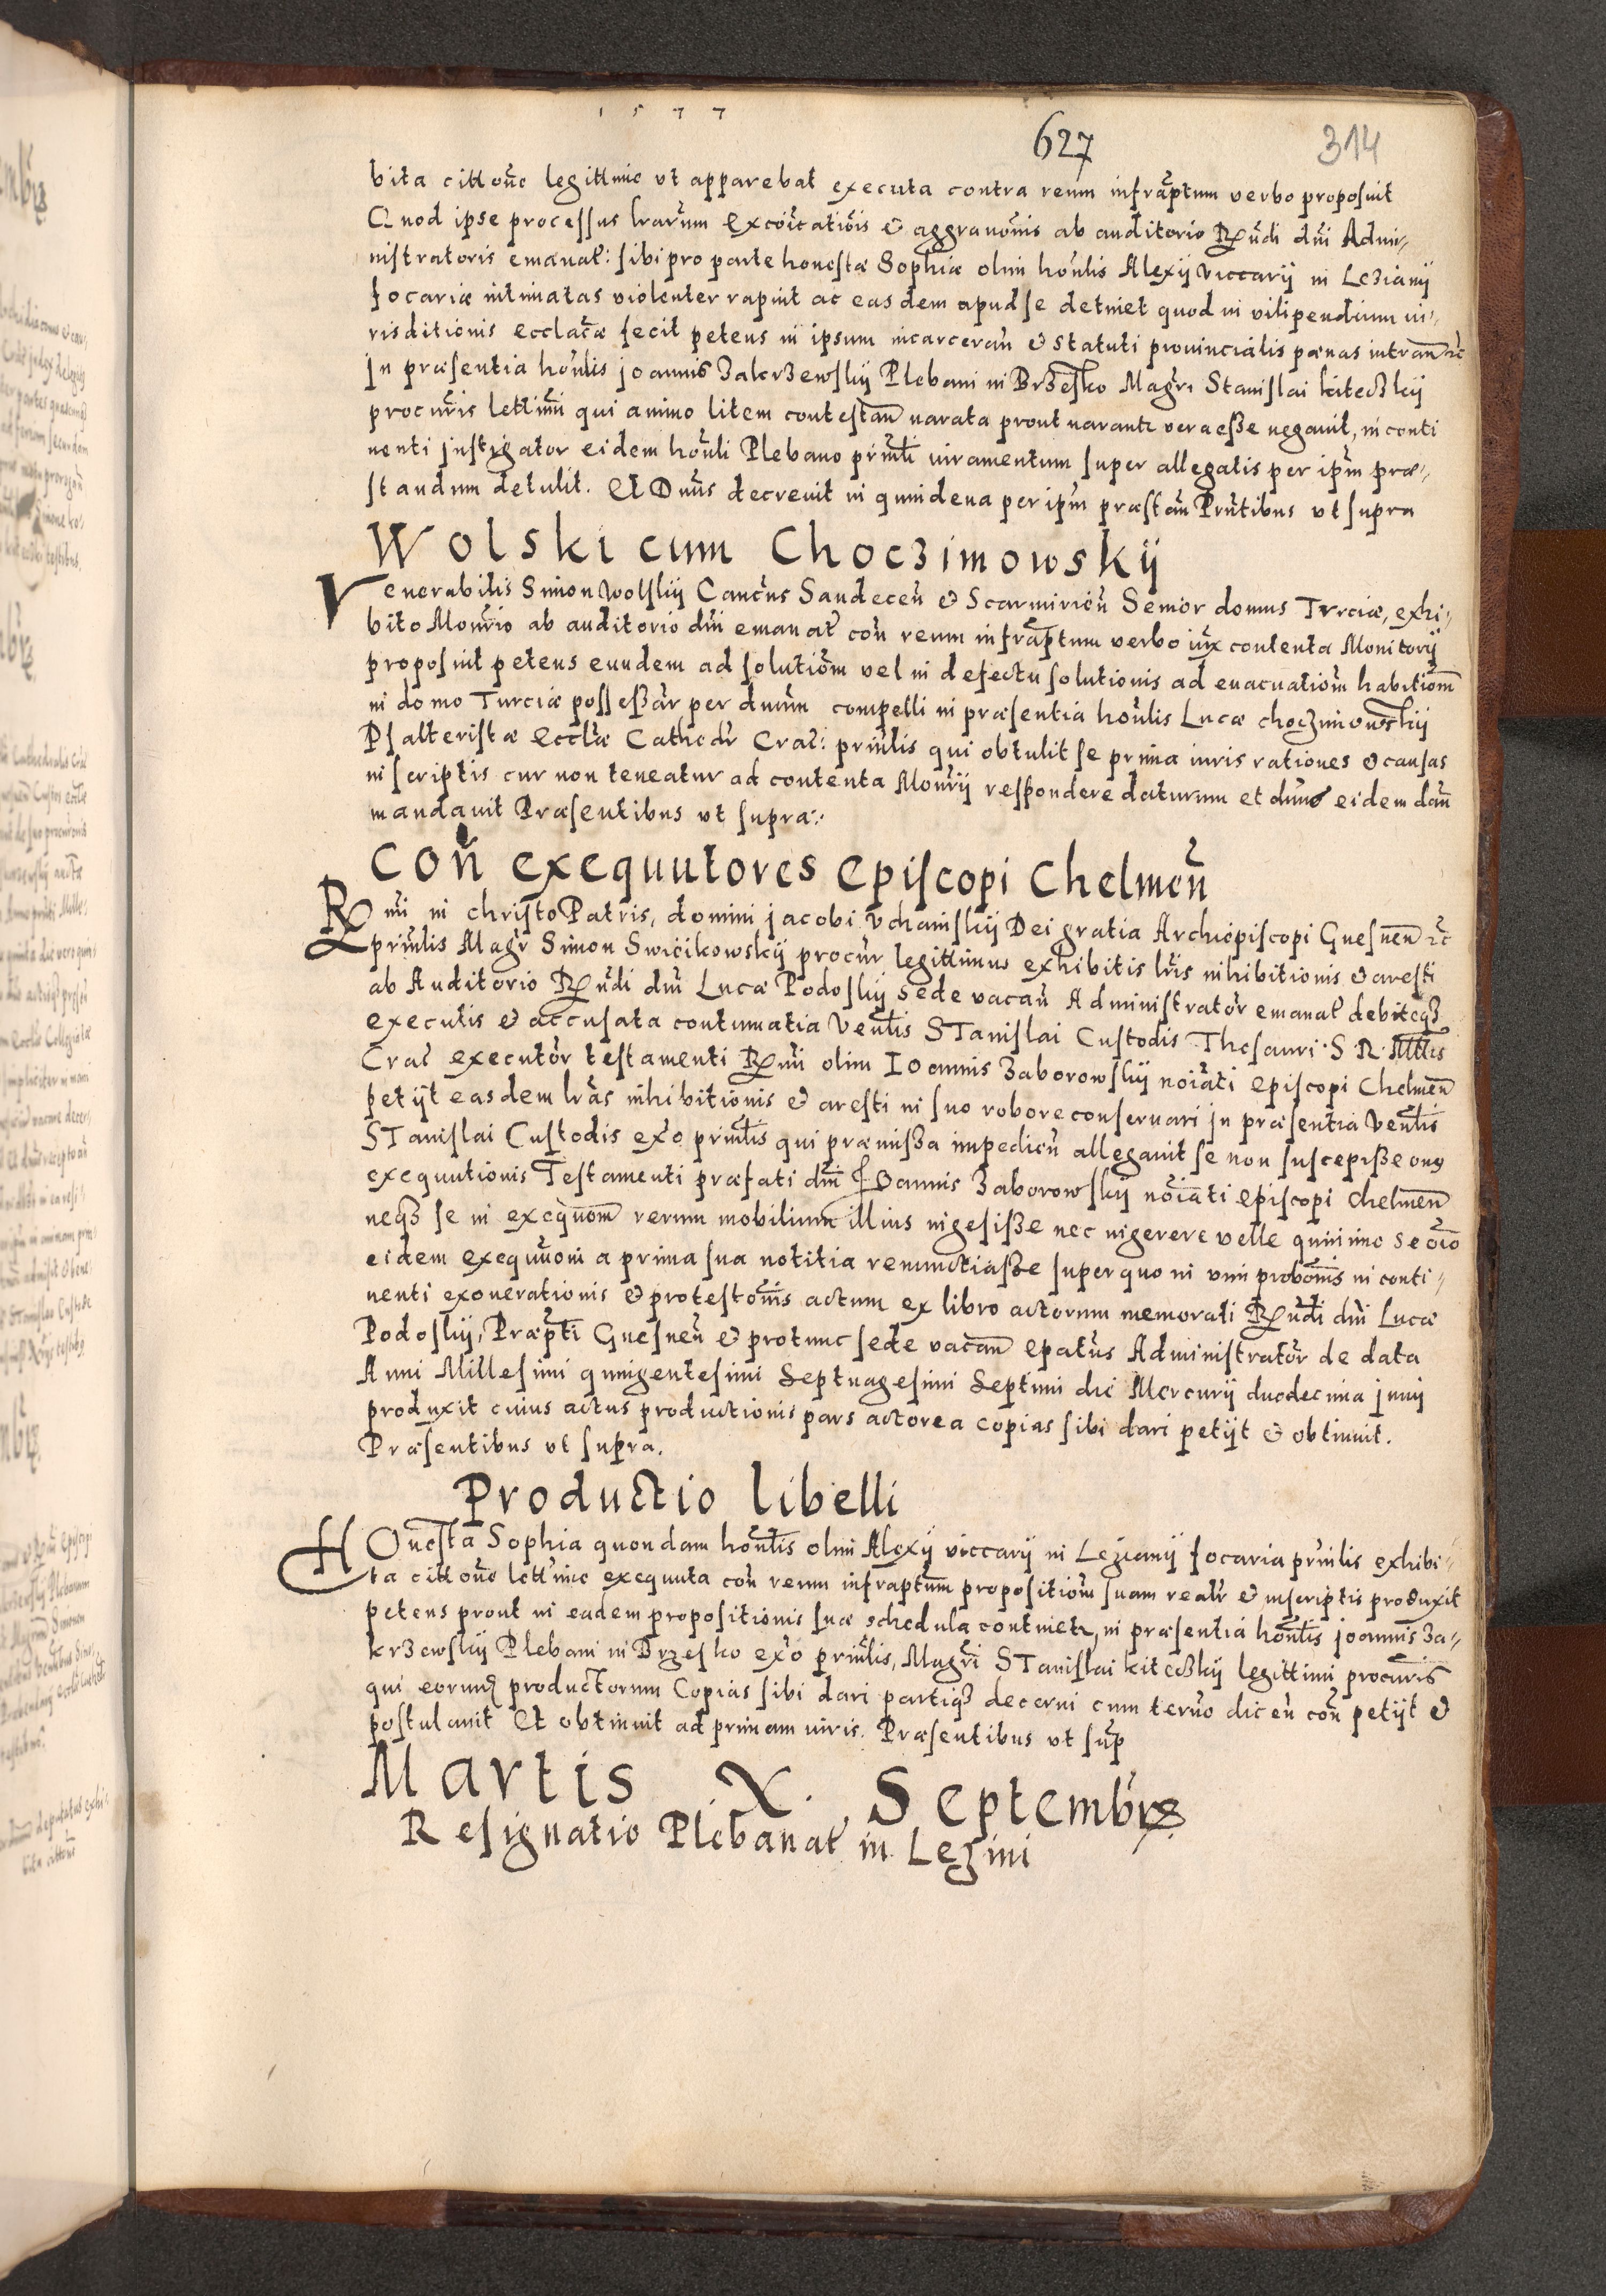 1577
627
314
bita cittoñe legittime ut apparebat executa contra reum infraptum verbo proposuit
Quod ipse processus lrarum excoicationis & aggrauonis ab auditorio Rndi dni Admi-
nistratoris emanat: sibi pro parte honestæ Sophiæ olim honlis Alexij viccarij in Lezianij
focariæ intimatas violenter rapuit ac eas dem apud se detinet quod in vilipendium iu-
risditionis ecclacæ fecit petens in ipsum incarceran & statuti prouincialis pænas intran etc
In præsentia honlis joannis Zakrzewskij Plebani in Brzesko Magri Stanislai kiteczkij
procuris lettimi qui animo litem contestan narata prout narantr vera esse negauit, in conti
nenti justigator eidem honli Plebano prnti iuramentum super allegatis per ipm præ-
standum detulit. Et Dnus decreuit in quindena per ipm præstan Prntibus ut supra
Wolski cum Choczimowskij
Venerabilis Simon Wolskij Cancus Sandecen & Scarmirien Senior domus Turciæ, exhi-
bito Monrio ab auditorio dni emanat con reum infraptum verbo iux contenta Monitorij
proposuit petens eundem ad solutiom vel in defectu solutionis ad euacuatiom habitiom
in domo Turciæ possessar per dnum compelli in præsentia honlis Lucæ choczimowskij
Psalteristæ Ecclæ Cathedr Crac: prnlis qui obtulit se prima iuris rationes & causas
in scriptis cur non teneatur ad contenta Monrij respondere daturum et dnus eidem dan
mandauit Præsentibus ut supra:
Con exequutores Episcopi Chelmen
Rmi in christo Patris, domini jacobi Vchanskij Dei gratia Archiepiscopi Gnesnen etc
prnlis Magr Simon Swiecikowskij procur legittimus exhibitis lris inhibitionis & aresti
ab Auditorio Rndi dni Lucæ Podoskij sede vacan Administrator emanat debiteqз
executis & accusata contumatia Venlis STanislai Custodis Thesauri S R Mttis
Crac executor testamenti Rmi olim Ioannis Zaborowskij noiati episcopi Chelmen
petijt easdem lras inhibitionis & aresti in suo robore conseruari in præsentia Venlis
STanislai Custodis exo prnlis qui præmissa impedien allegauit se non suscepisse onus
exequutionis Testamenti præfati dni Ioannis Zaborowskij noiati episcopi chelmen
neqз se in exequom rerum mobilium illius ingesisse nec ingerere velle quinimo se oio
eidem exequuoni a prima sua notitia renunctiasse super quo in vim probonis in conti-
nenti exonerationis & protestonis actum ex libro actorum memorati Rndi dni Lucæ
Podoskij, Præpti Gnesnen & protunc sede vacan epatus Administrator de data
Anni Millesimi quingentesimi Septuagesimi Septimi die Mercurij duodecima junij
produxit cuius actus productionis pars actorea copias sibi dari petijt & obtinuit.
Præsentibus ut supra.
Productio libelli
HOnesta Sophia quondam honlis olim Alexij viccarij in Lezianij focaria prnlis exhibi-
ta cittone lettime exequuta con reum infraptum propositiom suam realr & in scriptis produxit
petens prout in eadem propositionis suæ schedula continetr, in præsentia honlis joannis Za-
krzewskij Plebani in Brzesko exo prnlis, Magri STanislai kiteczkij legittimi procuris
qui eorum productorum Copias sibi dari partiqз decerni cum termo dicen con petijt &
postulauit Et obtinuit ad primam iuris. Præsentibus ut sup
Martis X. Septembris
Resignatio Plebanat in Lezini